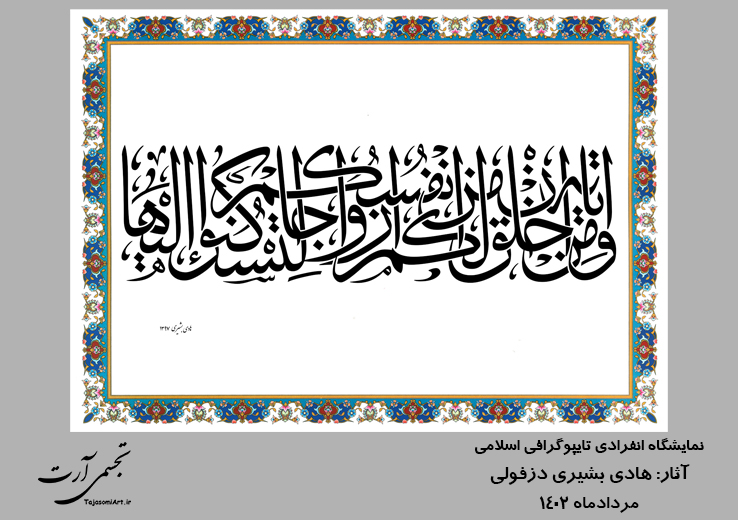 ومن ایاته ان خلق لکم من انفسکم ازواجا لتسکنوا الیها
هادی بشیری ۱۳۹۷
نمایشگاه انفرادی تایپوگرافی اسلامی
آثار: هادی بشیری دزفولی
مردادماه ۱۴۰۲
تجسمی آرت
TajasomiArt.ir